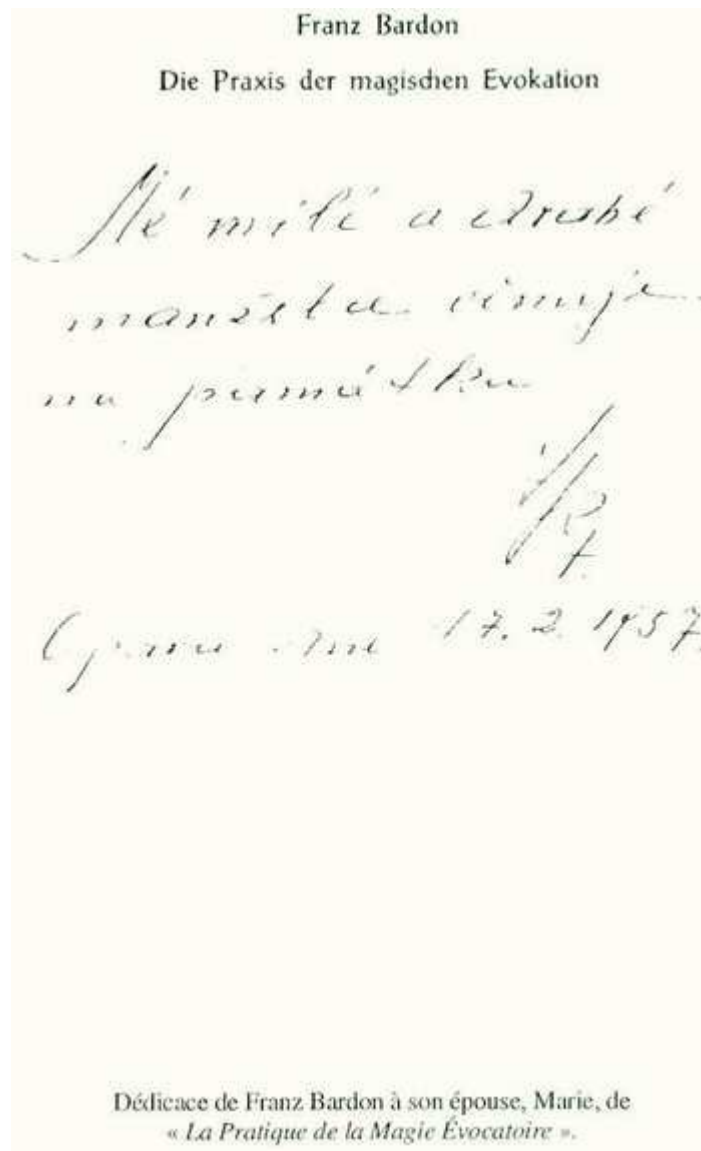 Franz Bardon
Die Praxis der magischen Evokation
Mé milé a drahé
manželce věnuje
na památku
Opava dne 17. 2. 1957.
Dédicace de Franz Bardon à son épouse, Marie, de
« La Pratique de la Magie Évocatoire ».